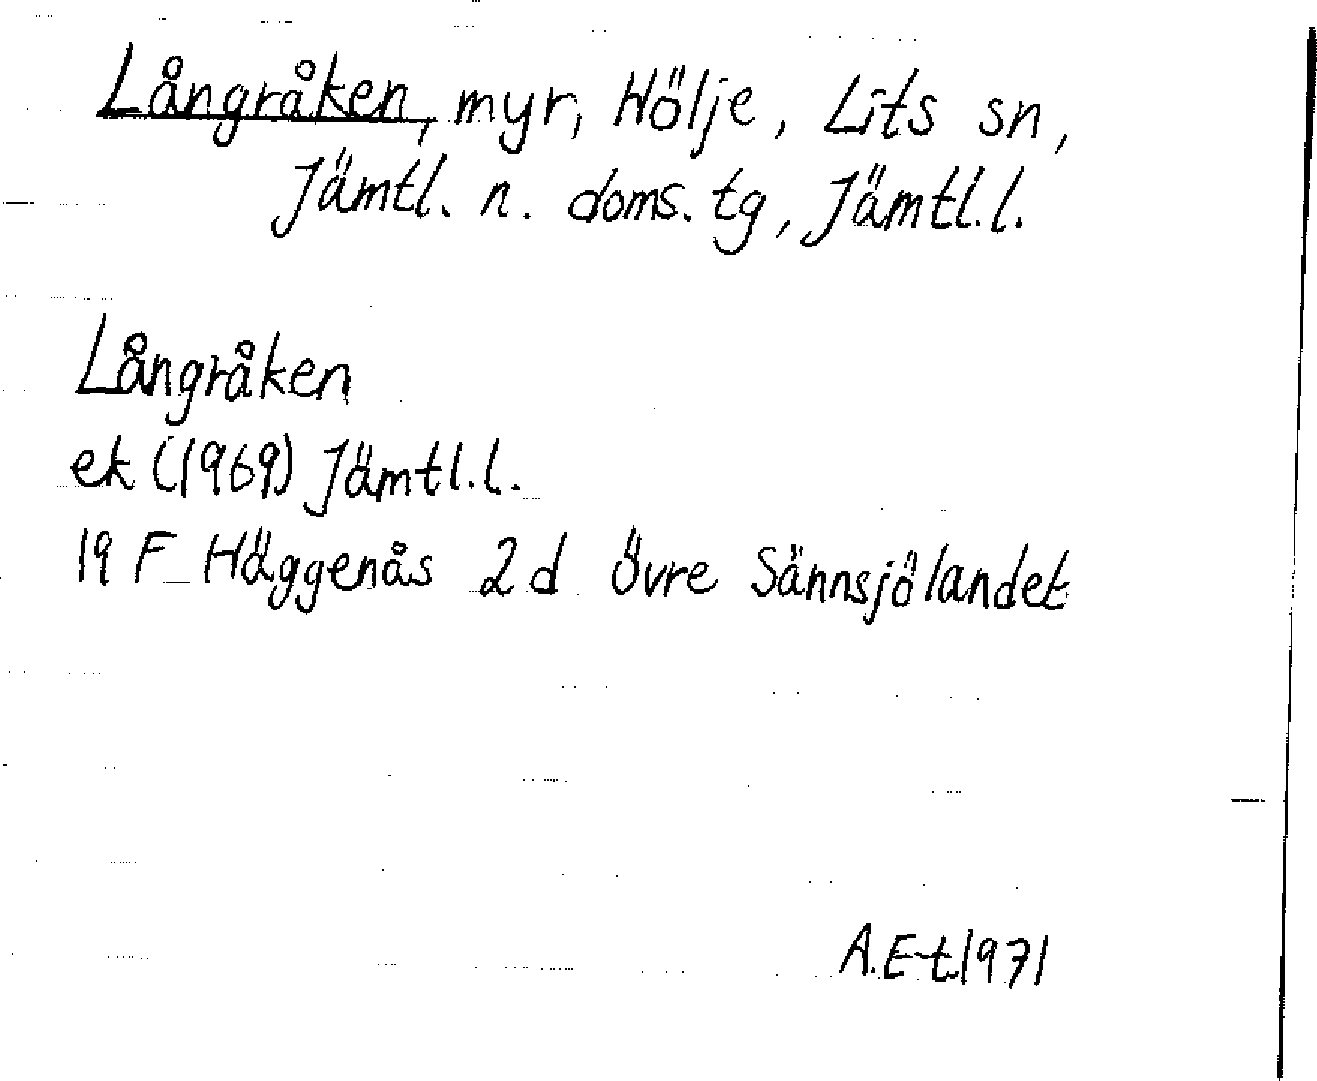 Långråken, myr, Hölje, Lits sn,
Jämtl. n. doms. tg, Jämtl. l.
Långråken
ek (1969) Jämtl. l.
19 F Häggenås 2d Övre Sännsjölandet
A.E-t. 1971